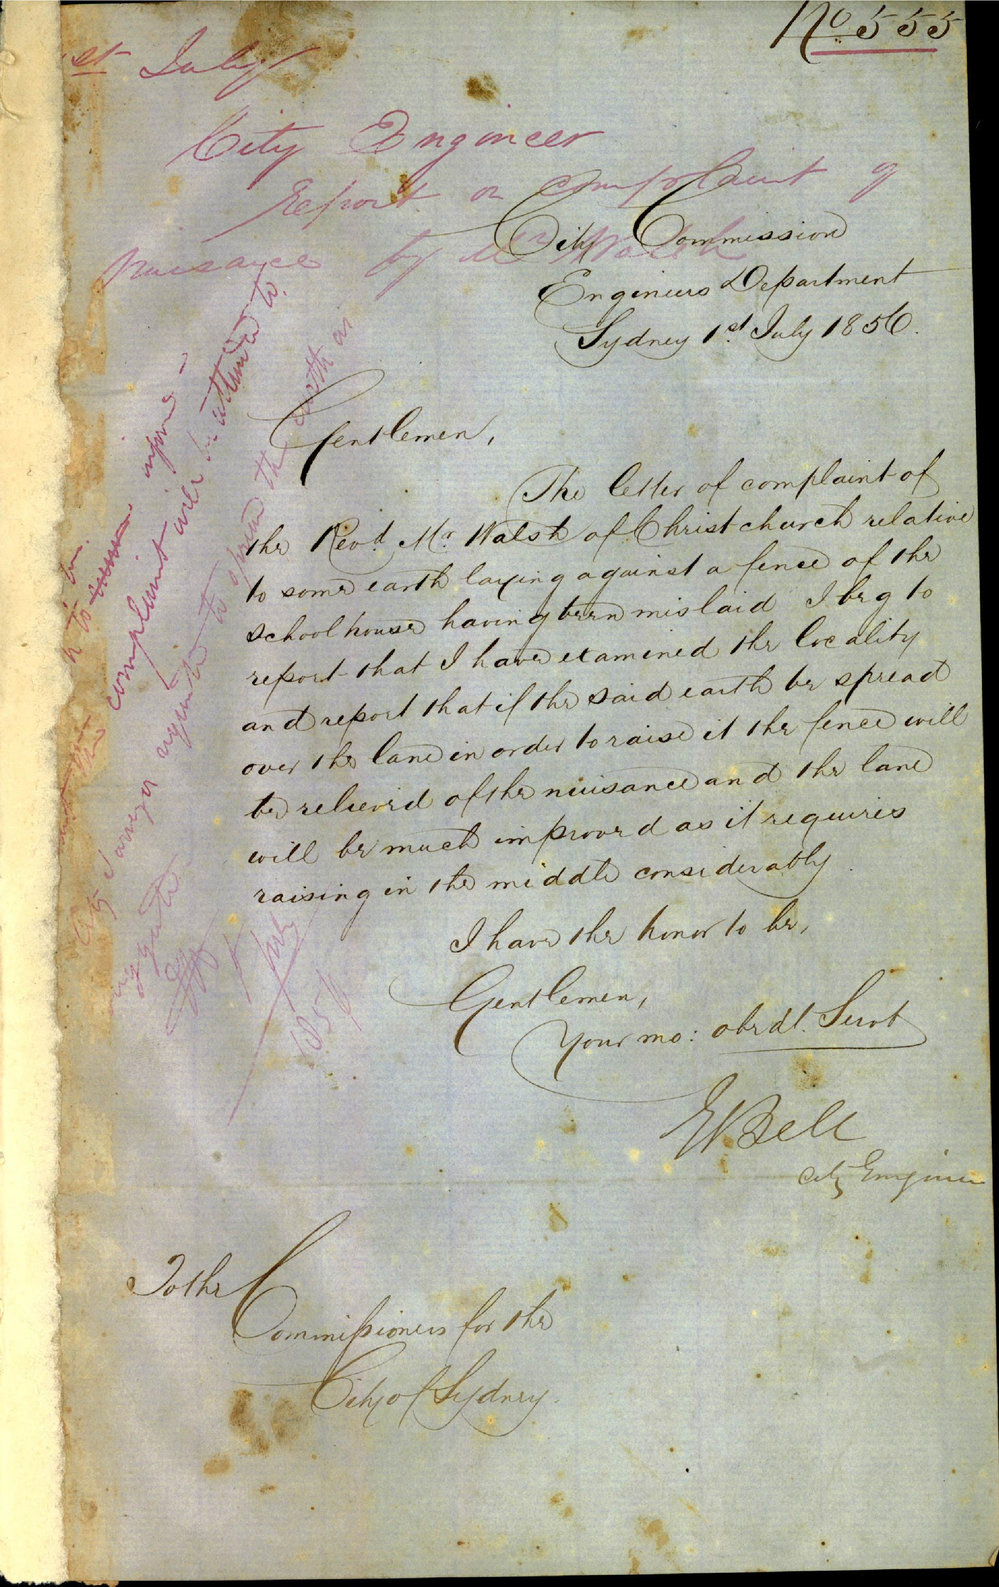 No 555
st July
City Engineer
Report on complaint of
nuisance by Mr Walsh
City Commission
Engineers Department
Sydney 1st July 1856.
Gentlemen,
The letter of complaint of
the Revd. Mr. Walsh of Christ church relative
to some earth laying against a fence of the
school house having been mislaid I beg to
report that I have examined the locality
and report that if the said earth be spread
over the lane in order to raise it the fence will
be releived of the nuisance and the lane
will be much improved as it requires
raising in the middle considerably.
I have the honor to be,
Gentlemen,
Your mo: obedt. Servt
E Bell
City Engineer
To the
Commissioners for the
City of Sydney.
complaint will be attended to.
to spread the earth as
July
1856